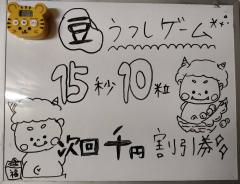 豆うつしゲーム
15秒10粒
次回千円割引券